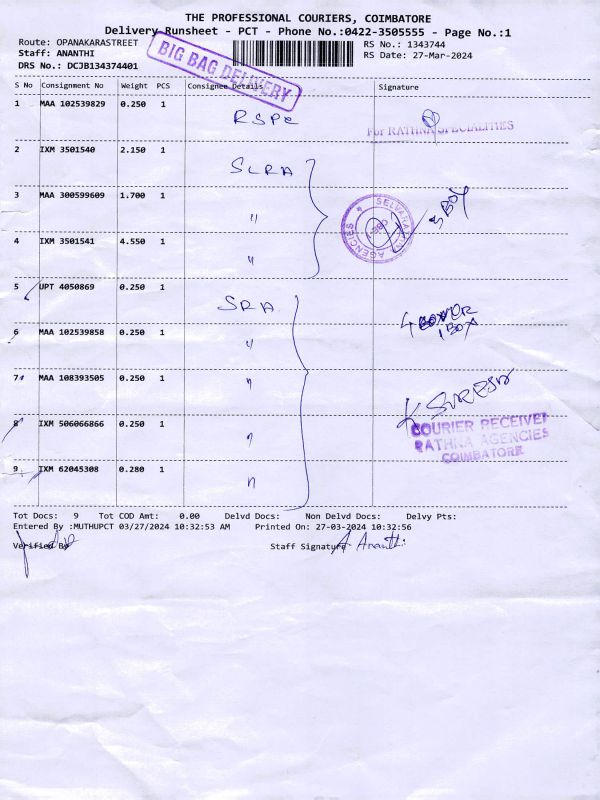 THE PROFESSIONAL COURIERS, COIMBATORE
Delivery Runsheet - PCT - Phone No.:0422-3505555 - Page No.:1
Route: OPANAKARASTREET RS No.: 1343744
Staff: ANANTHI RS Date: 27-Mar-2024
DRS No.: DCJB134374401
BIG BAG DELIVERY
S No Consignment No Weight PCS Consignee Details Signature
1 MAA 102539829 0.250 1
RSPC
For RATHNA SPECIALITIES
2 IXM 3501540 2.150 1
SLRA
3 MAA 300599609 1.700 1
"
SELVARATHNA AGENCIES
3 BOX
4 IXM 3501541 4.550 1
"
5 UPT 4050869 0.250 1
SRA
6 MAA 102539858 0.250 1
"
4 COVER
1 BOX
7 MAA 108393505 0.250 1
"
K SURESH
8 IXM 506066866 0.250 1
"
COURIER RECEIVED
RATHNA AGENCIES
COIMBATORE
9 IXM 62045308 0.280 1
"
Tot Docs: 9 Tot COD Amt: 0.00 Delvd Docs: Non Delvd Docs: Delvy Pts:
Entered By :MUTHUPCT 03/27/2024 10:32:53 AM Printed On: 27-03-2024 10:32:56
Verified By Staff Signature A. Ananthi